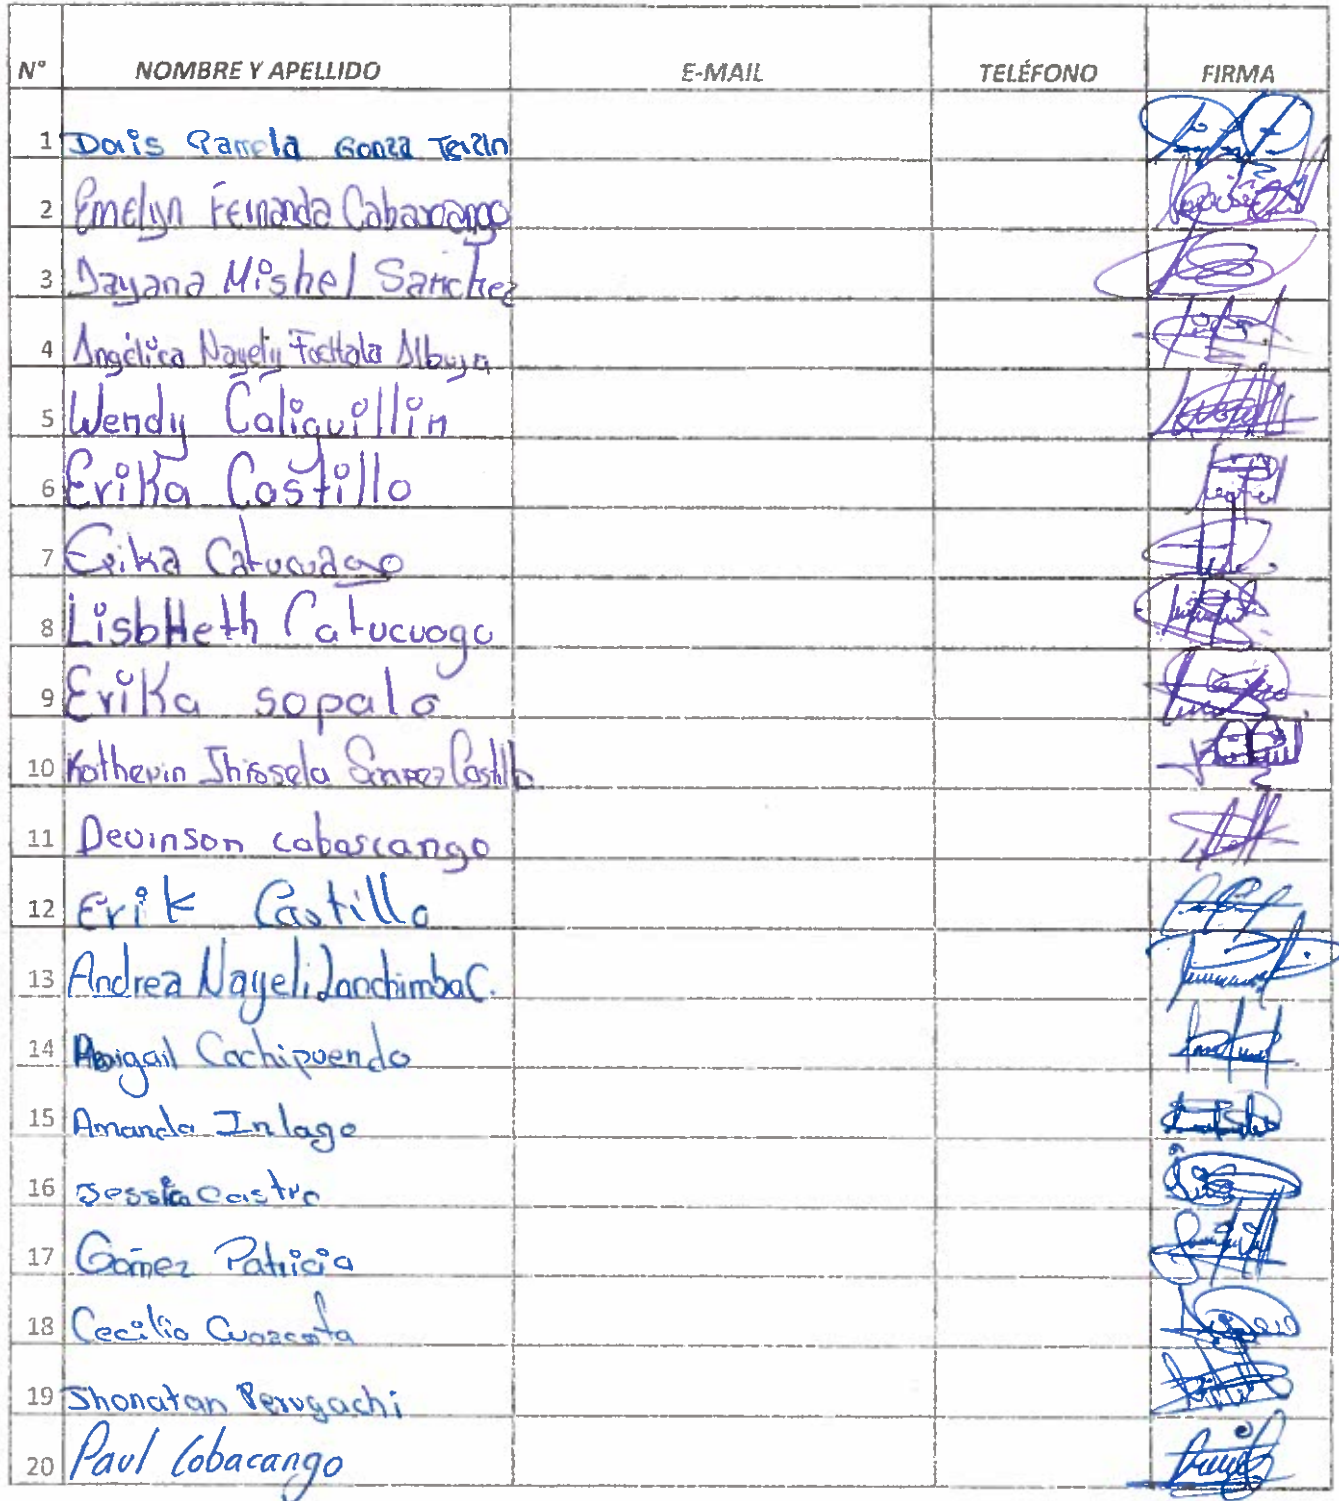 N° NOMBRE Y APELLIDO E-MAIL TELÉFONO FIRMA
1 Doris Pamela Gonza Terán
2 Emelyn Fernanda Cabascango
3 Dayana Mishel Sanchez
4 Angélica Nayely Albuja
5 Wendy Caliguillin
6 Erika Castillo
7 Erika Catucuago
8 LisbHeth Catucuago
9 Erika sopalo
10 Katherin Jhissela Castillo
11 Devinson cabascango
12 Erik Castillo
13 Andrea Nayeli Lanchimba C.
14 Abigail Cachipuendo
15 Amanda Inlago
16 Jessica Castro
17 Gómez Patricia
18 Cecilia Cuascota
19 Jhonatan Perugachi
20 Paul Cobacango